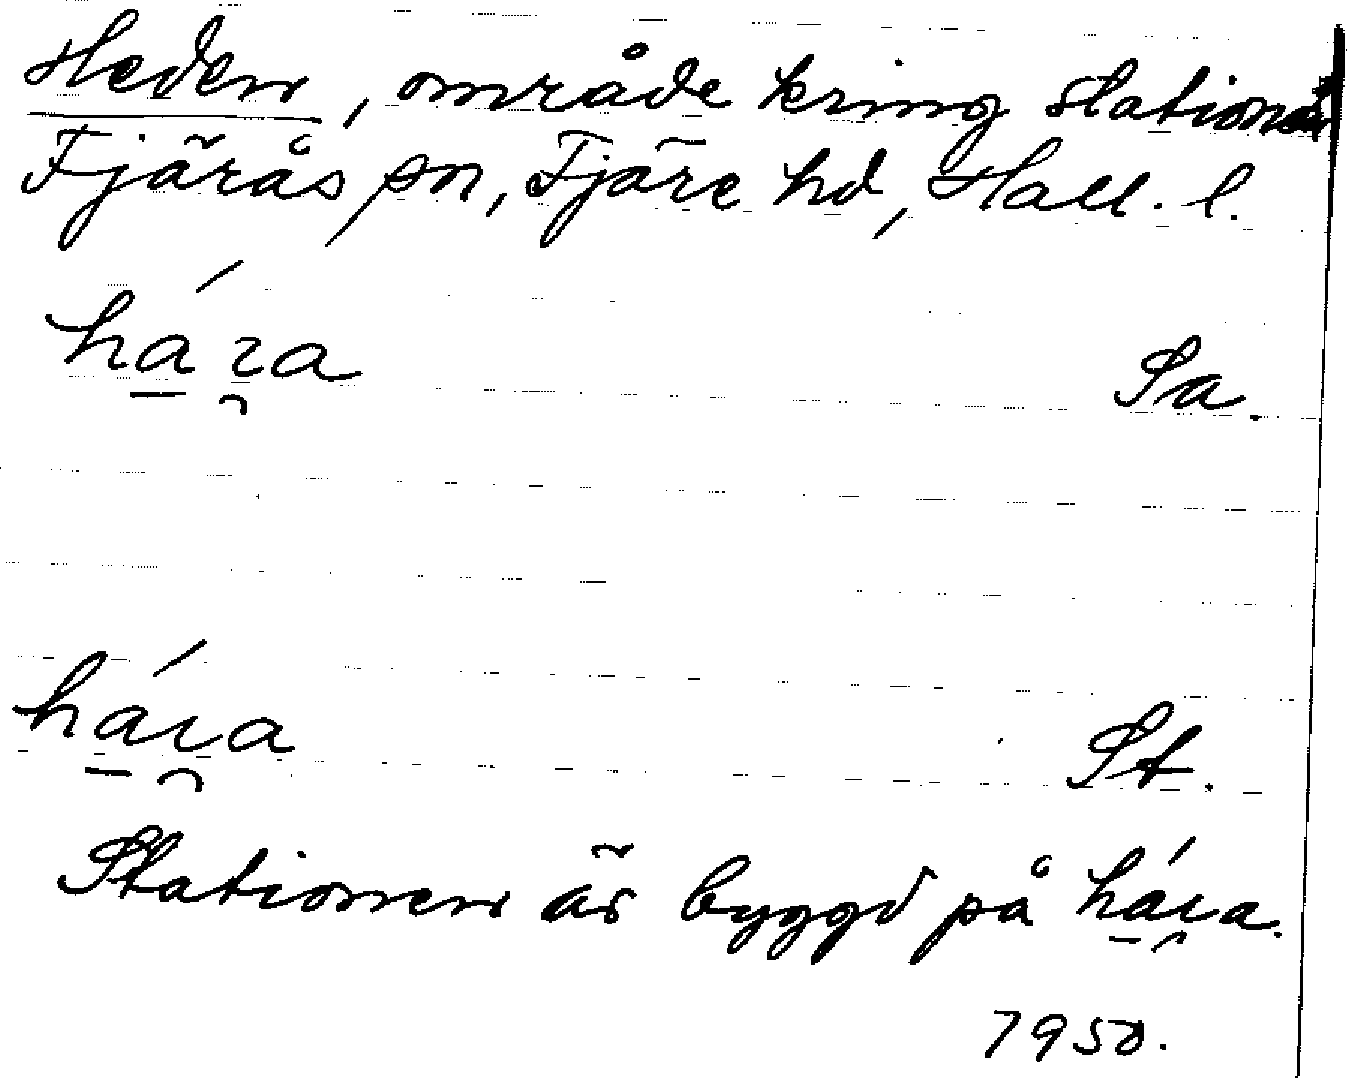 Heden, område kring stationen
Fjärås sn, Fjäre hd, Hall. l.
há̱ɿ̯a
Sa.
há̱ɿ̯a
St.
Stationen är byggd på há̱ɿ̯a.
1950.